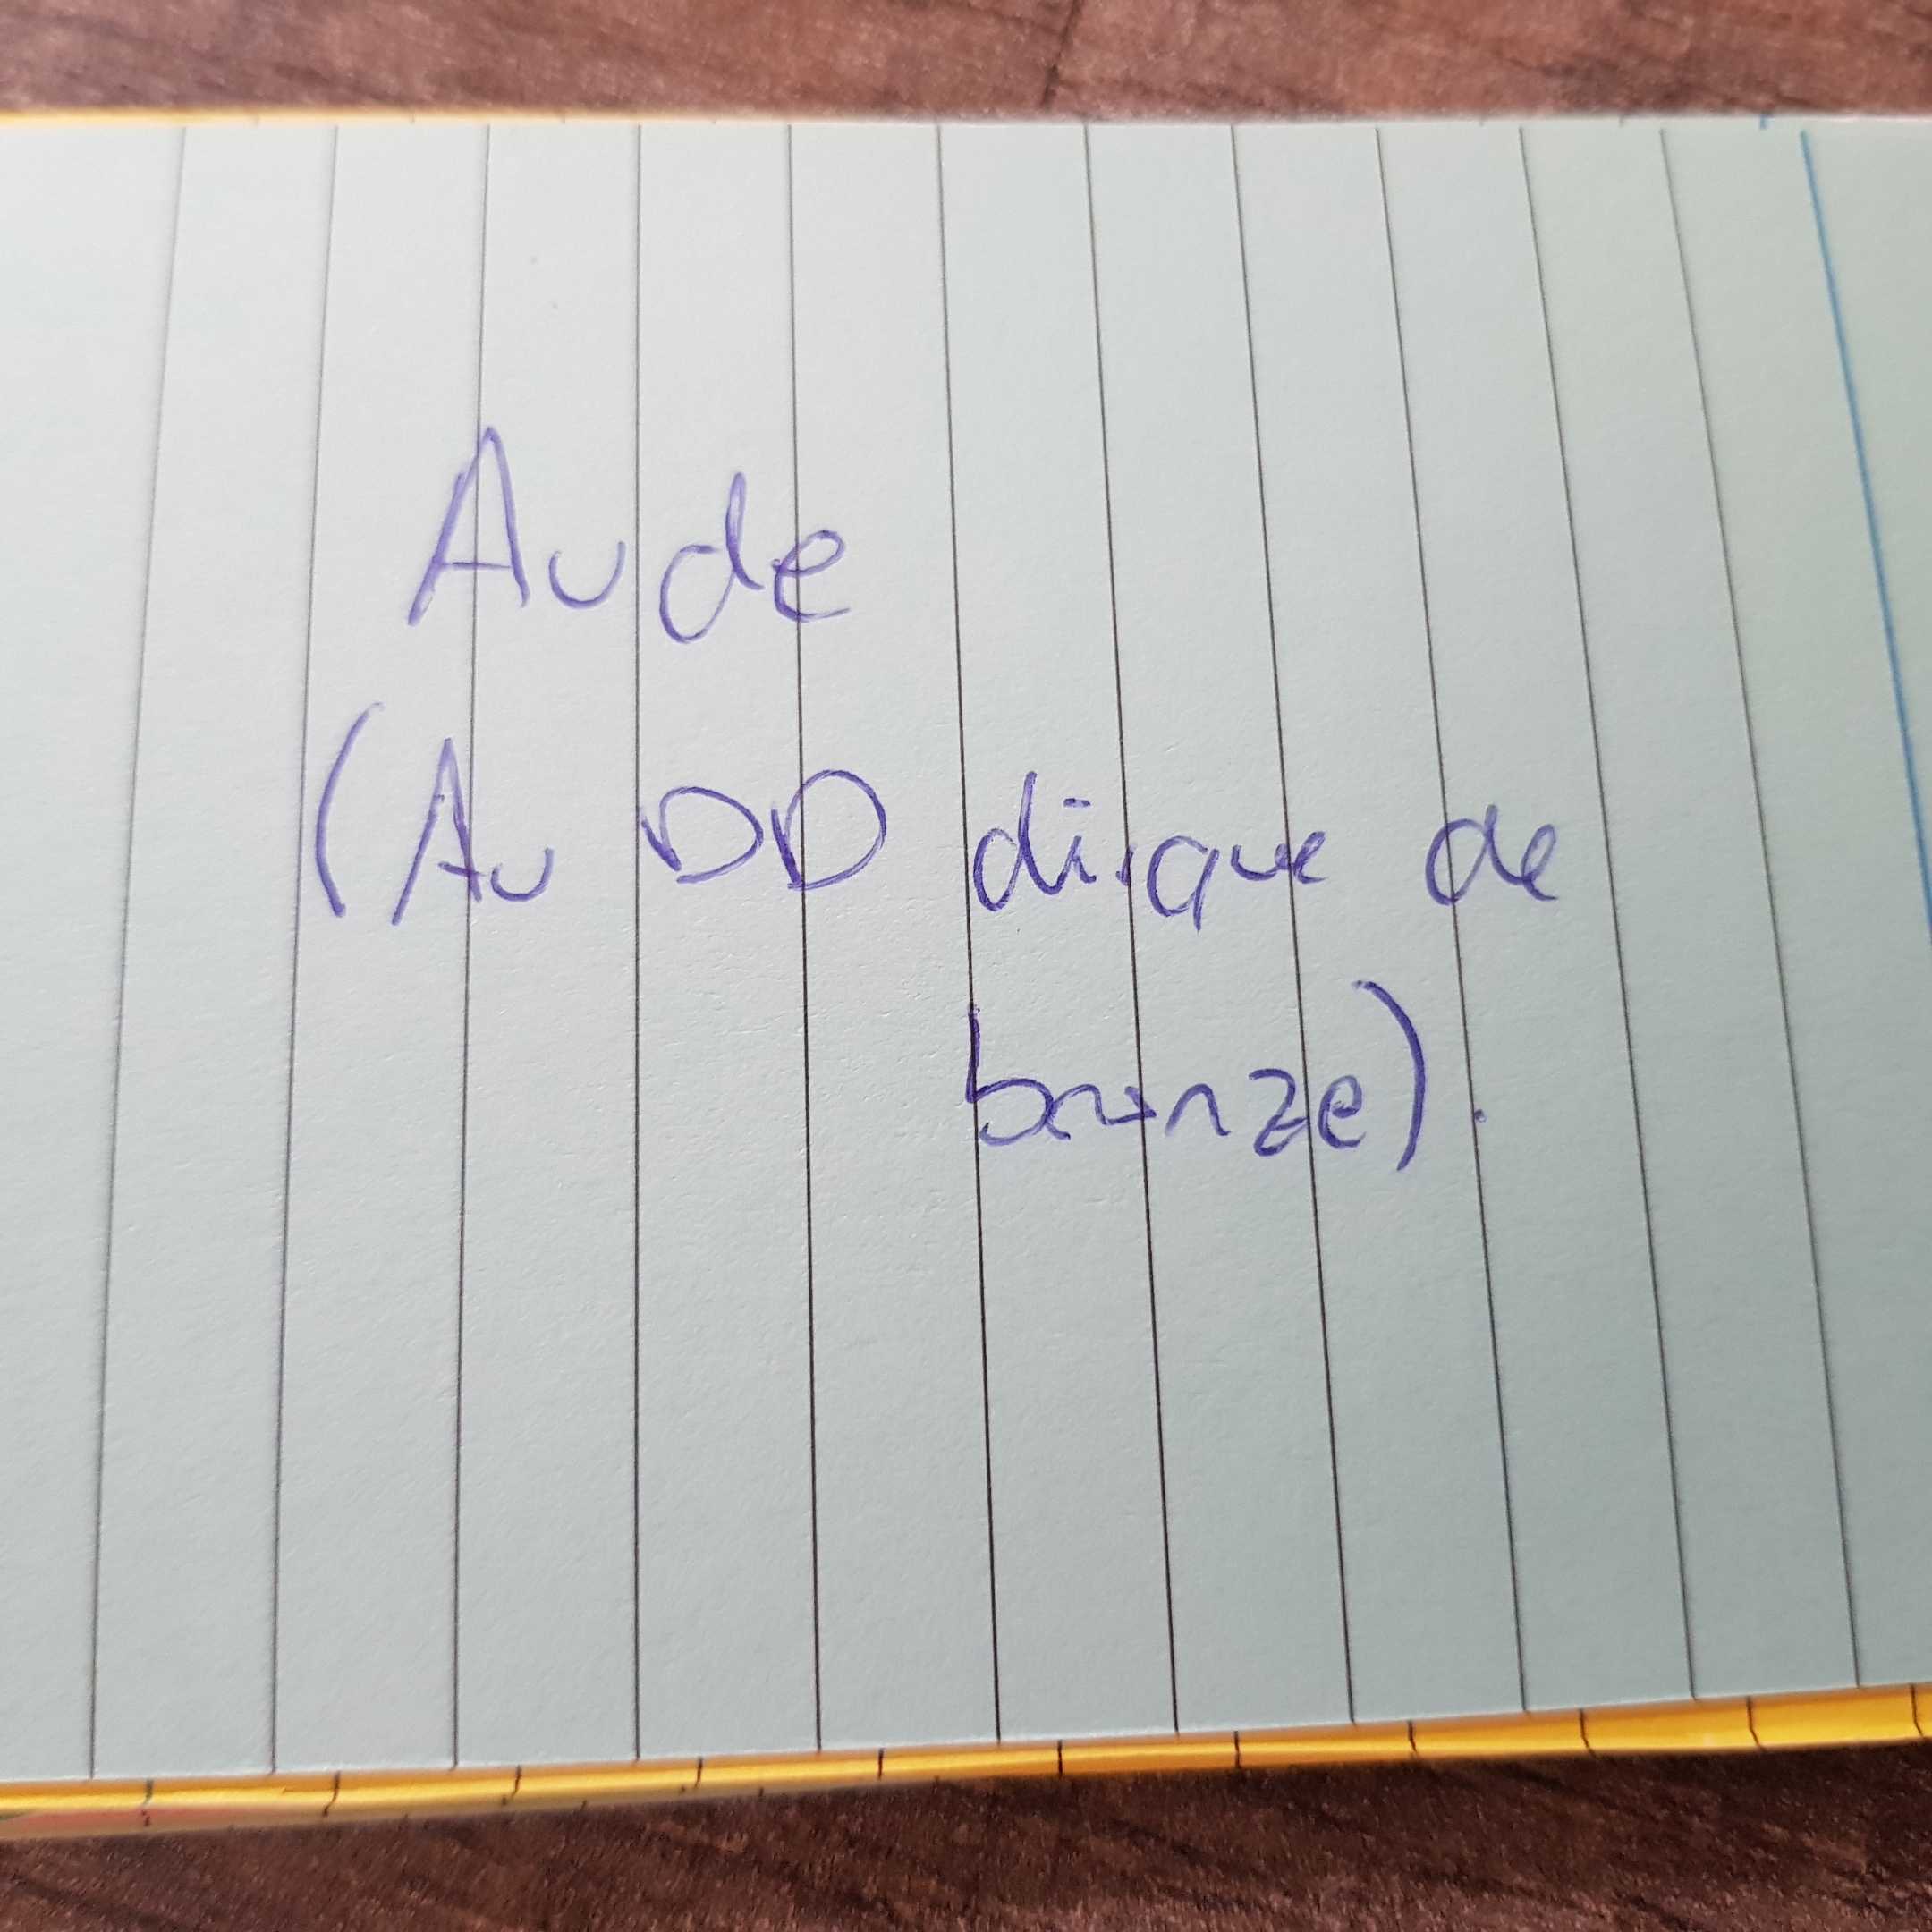 Aude
(Au DD disque de
bronze).